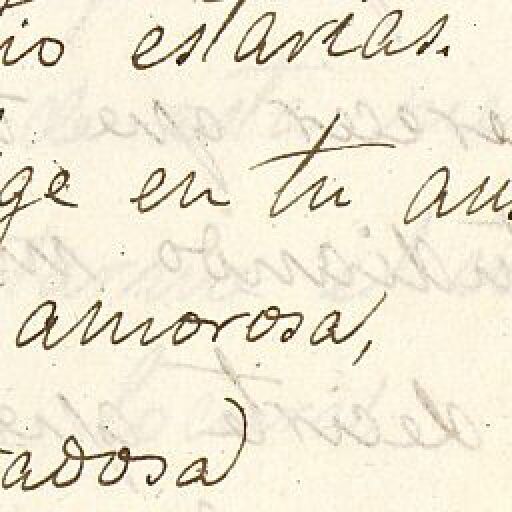 tio estarias.
ige en tu aus
amorosa,
adosa